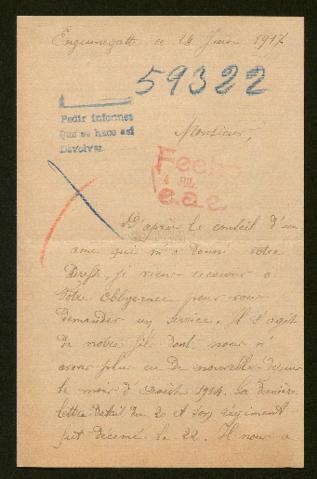 Enguinegatte ce 24 Juin 1917
59322
Pedir informes
Que se hace asi
Devolver
Monsieur,
Fecha
4 JUL.
e.a.e.
D'après le conseil d'un
ami qui m'a donné votre
Dresse, je viens recourir à
Votre obligence pour vous
demander un service. Il s'agit
de notre fils dont nous n'
avons plus eu de nouvelle depuis
le mois d'août 1914. Sa dernière
lettre datait du 20 et son régiment
fut décimé le 22. Il nous a